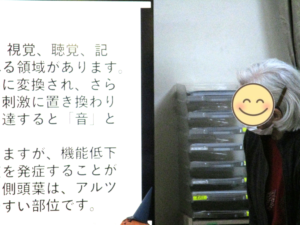 視覚、聴覚、記
る領域があります。
に変換され、さら
刺激に置き換わり
達すると「音」と
ますが、機能低下
を発症することが
側頭葉は、アルツ
すい部位です。